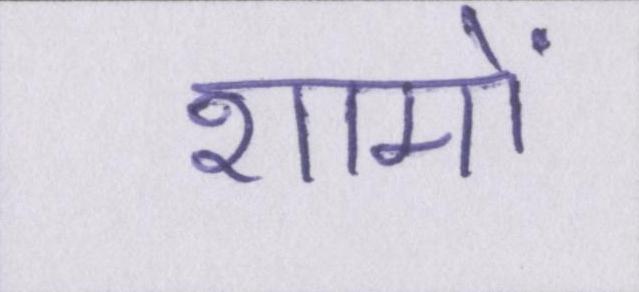 शामों